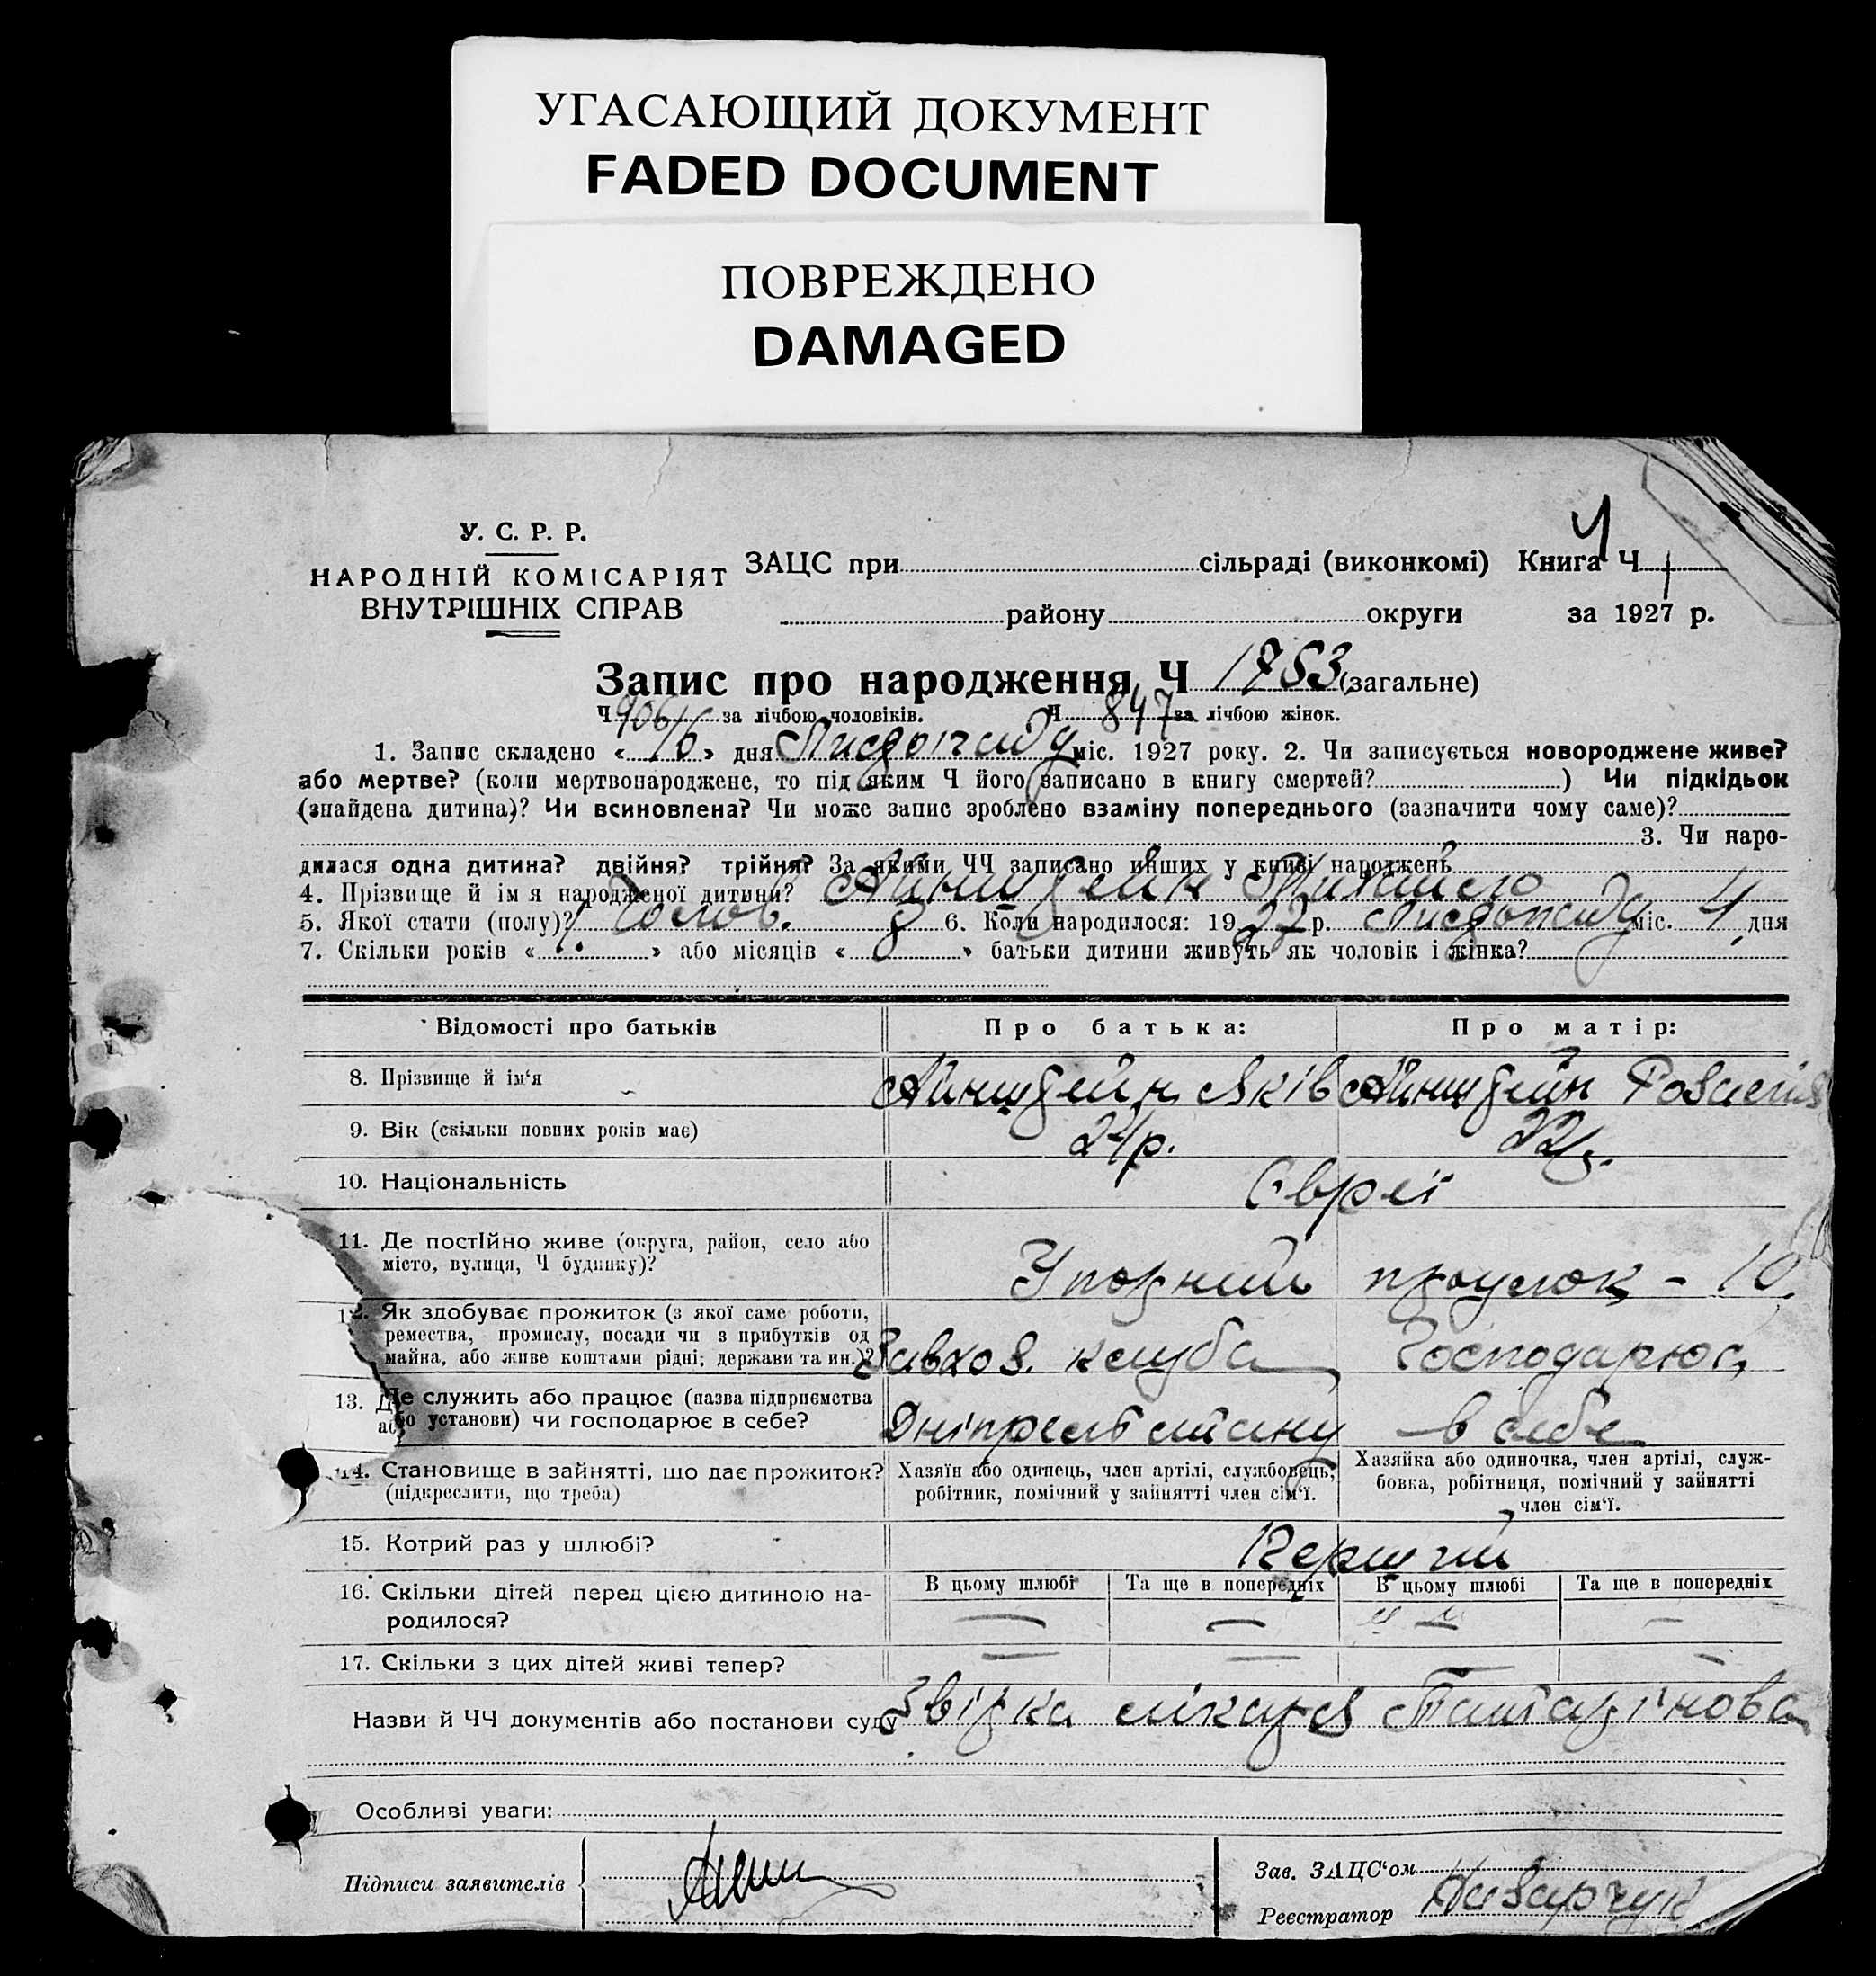 УГАСАЮЩИЙ ДОКУМЕНТ
FADED DOCUMENT
ПОВРЕЖДЕНО
DAMAGED
У. С. Р. Р.
НАРОДНІЙ КОМІСАРІЯТ
ВНУТРІШНІХ СПРАВ
ЗАЦС при сільраді (виконкомі) Книга Ч
району округи за 1927 р.
Запис про народження Ч 1753 (загальне)
Ч 906 за лічбою чоловіків. Ч 847 за лічбою жінок.
1. Запис складено « 16 » дня Листопаду міс. 1927 року. 2. Чи записується новороджене живе?
або мертве? (коли мертвонароджене, то під яким Ч його записано в книгу смертей? ) Чи підкідьок
(знайдена дитина)? Чи всиновлена? Чи може запис зроблено взаміну попереднього (зазначити чому саме)?
3. Чи наро-
дилася одна дитина? двійня? трійня? За якими ЧЧ записано инших у книзі народжень
4. Прізвище й ім я народженої дитини? Айнштейн
5. Якої стати (полу)? Чолов. 6. Коли народилося: 1927 р. Листопаду міс. 4 дня
7. Скільки років « 1. » або місяців « » батьки дитини живуть як чоловік і жінка?
Відомості про батьків
Про батька:
Про матір:
8. Прізвище й ім‘я
Айнштейн Яків
Айнштейн Розалія
9. Вік (скільки повних років має)
24 р.
22 р.
10. Національність
Євреї
11. Де постійно живе (округа, район, село або
місто, вулиця, Ч будинку)?
Упорний проулок - 10.
12. Як здобуває прожиток (з якої саме роботи,
ремества, промислу, посади чи з прибутків од
майна, або живе коштами рідні; держави та ин.)?
Завхоз. клуба
Господарює
13. Де служить або працює (назва підприємства
або установи) чи господарює в себе?
в себе
14. Становище в зайнятті, що дає прожиток?
(підкреслити, що треба)
Хазяїн або одинець, член артілі, службовець,
робітник, помічний у зайнятті член сім‘ї.
Хазяйка або одиночка, член артілі, служ-
бовка, робітниця, помічний у зайнятті
член сім‘ї.
15. Котрий раз у шлюбі?
Перший
16. Скільки дітей перед цією дитиною на-
родилося?
В цьому шлюбі
Та ще в попередніх
В цьому шлюбі
Та ще в попередніх
—
—
—
17. Скільки з цих дітей живі тепер?
—
—
—
Назви й ЧЧ документів або постанови суду Звірка лікаря Татарінова
Особливі уваги:
Підписи заявителів
Зав. ЗАЦС‘ом
Реєстратор